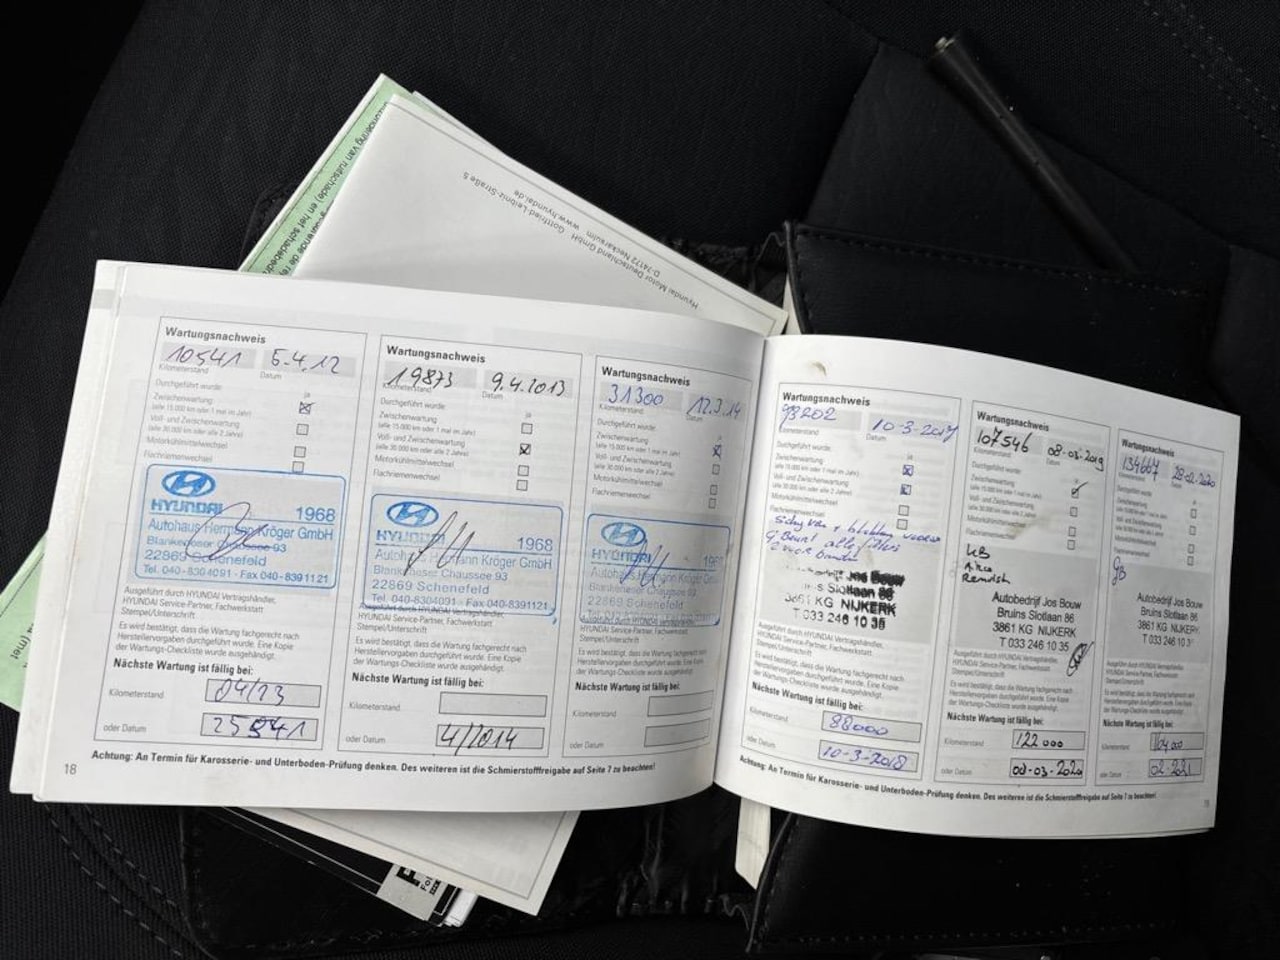 Hyundai Motor Deutschland GmbH · Gottfried-Leibniz-Straße 5
D-74172 Neckarsulm www.hyundai.de
Wartungsnachweis
10541 5.4.12
Kilometerstand Datum
Durchgeführt wurde: ja
Zwischenwartung
(alle 15.000 km oder 1 mal im Jahr)
Voll- und Zwischenwartung
(alle 30.000 km oder alle 2 Jahre)
Motorkühlmittelwechsel
Flachriemenwechsel
HYUNDAI 1968
Autohaus Hermann Kröger GmbH
Blankeneser Chaussee 93
22869 Schenefeld
Tel. 040-8304091 · Fax 040-8391121
Ausgeführt durch HYUNDAI Vertragshändler,
HYUNDAI Service-Partner, Fachwerkstatt
Stempel/Unterschrift
Es wird bestätigt, dass die Wartung fachgerecht nach
Herstellervorgaben durchgeführt wurde. Eine Kopie
der Wartungs-Checkliste wurde ausgehändigt.
Nächste Wartung ist fällig bei:
Kilometerstand 04/13
oder Datum 25541
Wartungsnachweis
19873 9.4.2013
Kilometerstand Datum
Durchgeführt wurde: ja
Zwischenwartung
(alle 15.000 km oder 1 mal im Jahr)
Voll- und Zwischenwartung
(alle 30.000 km oder alle 2 Jahre)
Motorkühlmittelwechsel
Flachriemenwechsel
HYUNDAI 1968
Autohaus Hermann Kröger GmbH
Blankeneser Chaussee 93
22869 Schenefeld
Tel. 040-8304091 · Fax 040-8391121
Ausgeführt durch HYUNDAI Vertragshändler,
HYUNDAI Service-Partner, Fachwerkstatt
Stempel/Unterschrift
Es wird bestätigt, dass die Wartung fachgerecht nach
Herstellervorgaben durchgeführt wurde. Eine Kopie
der Wartungs-Checkliste wurde ausgehändigt.
Nächste Wartung ist fällig bei:
Kilometerstand
oder Datum 4/2014
Wartungsnachweis
31300 12.3.14
Kilometerstand Datum
Durchgeführt wurde: ja
Zwischenwartung
(alle 15.000 km oder 1 mal im Jahr)
Voll- und Zwischenwartung
(alle 30.000 km oder alle 2 Jahre)
Motorkühlmittelwechsel
Flachriemenwechsel
HYUNDAI 1968
Autohaus Hermann Kröger GmbH
Blankeneser Chaussee 93
22869 Schenefeld
Tel. 040-8304091 · Fax 040-8391121
Ausgeführt durch HYUNDAI Vertragshändler,
HYUNDAI Service-Partner, Fachwerkstatt
Stempel/Unterschrift
Es wird bestätigt, dass die Wartung fachgerecht nach
Herstellervorgaben durchgeführt wurde. Eine Kopie
der Wartungs-Checkliste wurde ausgehändigt.
Nächste Wartung ist fällig bei:
Kilometerstand
oder Datum
Achtung: An Termin für Karosserie- und Unterboden-Prüfung denken. Des weiteren ist die Schmierstofffreigabe auf Seite 7 zu beachten!
18
Wartungsnachweis
93202 10-3-2017
Datum
Durchgeführt wurde: ja
Zwischenwartung
(alle 15.000 km oder 1 mal im Jahr)
Voll- und Zwischenwartung
(alle 30.000 km oder alle 2 Jahre)
Motorkühlmittelwechsel
Flachriemenwechsel
alle filters
Jos Bouw
Slotlaan 86
3861 KG NIJKERK
T 033 246 10 35
Ausgeführt durch HYUNDAI Vertragshändler,
HYUNDAI Service-Partner, Fachwerkstatt
Stempel/Unterschrift
Es wird bestätigt, dass die Wartung fachgerecht nach
Herstellervorgaben durchgeführt wurde. Eine Kopie
der Wartungs-Checkliste wurde ausgehändigt.
Nächste Wartung ist fällig bei:
Kilometerstand 98000
oder Datum 10-3-2018
Wartungsnachweis
107546 08-03-2019
Kilometerstand Datum
Durchgeführt wurde: ja
Zwischenwartung
(alle 15.000 km oder 1 mal im Jahr)
Voll- und Zwischenwartung
(alle 30.000 km oder alle 2 Jahre)
Motorkühlmittelwechsel
Flachriemenwechsel
Airco
Remvlsh
Autobedrijf Jos Bouw
Bruins Slotlaan 86
3861 KG NIJKERK
T 033 246 10 35
Ausgeführt durch HYUNDAI Vertragshändler,
HYUNDAI Service-Partner, Fachwerkstatt
Stempel/Unterschrift
Es wird bestätigt, dass die Wartung fachgerecht nach
Herstellervorgaben durchgeführt wurde. Eine Kopie
der Wartungs-Checkliste wurde ausgehändigt.
Nächste Wartung ist fällig bei:
Kilometerstand 122 000
oder Datum 08-03-2020
Wartungsnachweis
134667 28-02-2020
Kilometerstand Datum
Durchgeführt wurde: ja
Zwischenwartung
(alle 15.000 km oder 1 mal im Jahr)
Voll- und Zwischenwartung
(alle 30.000 km oder alle 2 Jahre)
Motorkühlmittelwechsel
Flachriemenwechsel
GB
Autobedrijf Jos Bouw
Bruins Slotlaan 86
3861 KG NIJKERK
T 033 246 10 3
Ausgeführt durch HYUNDAI Vertragshändler,
HYUNDAI Service-Partner, Fachwerkstatt
Stempel/Unterschrift
Es wird bestätigt, dass die Wartung fachgerecht nach
Herstellervorgaben durchgeführt wurde. Eine Kopie
der Wartungs-Checkliste wurde ausgehändigt.
Nächste Wartung ist fällig bei:
Kilometerstand
oder Datum 02-2021
Achtung: An Termin für Karosserie- und Unterboden-Prüfung denken. Des weiteren ist die Schmierstofffreigabe auf Seite 7 zu beachten!
19